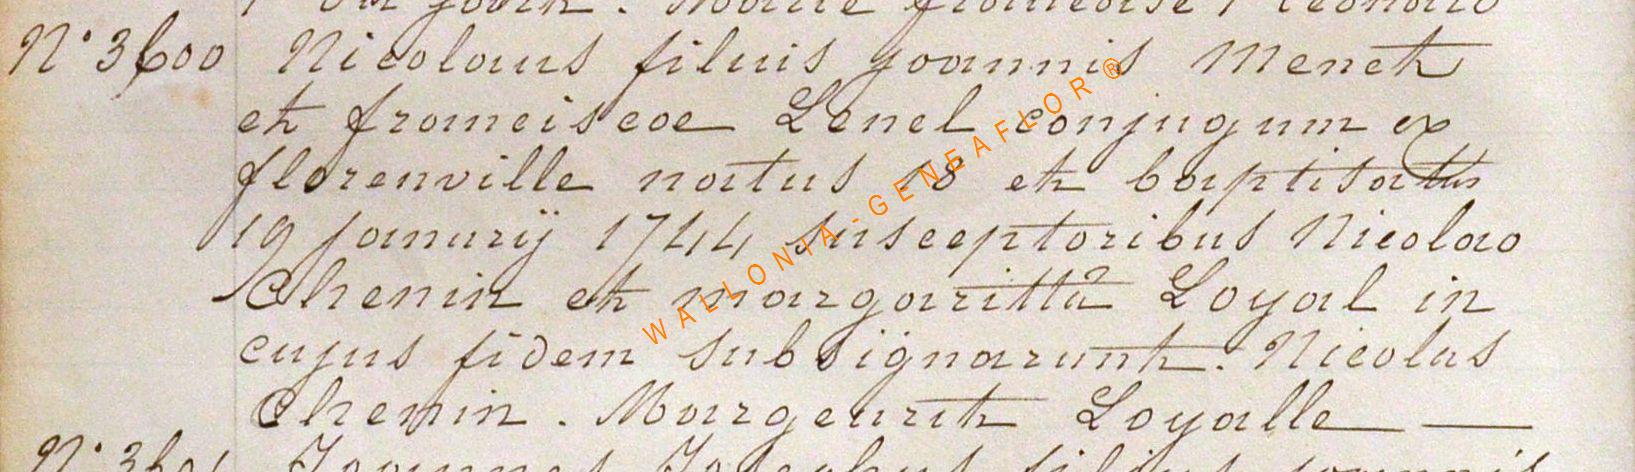 N° 3600 Nicolaus filuis joannis Meneth
et franciscoe Lenel conjugum ex
florenville natus 18 et baptisatus
19 januarij 1744 susceptoribus Nicolao
Chenin et margaritta Loyal in
cujus fidem subsignarunt. Nicolas
Chenin. Margeurit Loyalle
N° 3601 Joannes Josephus filius joannis
WALLONIA-GENEAFLOR®